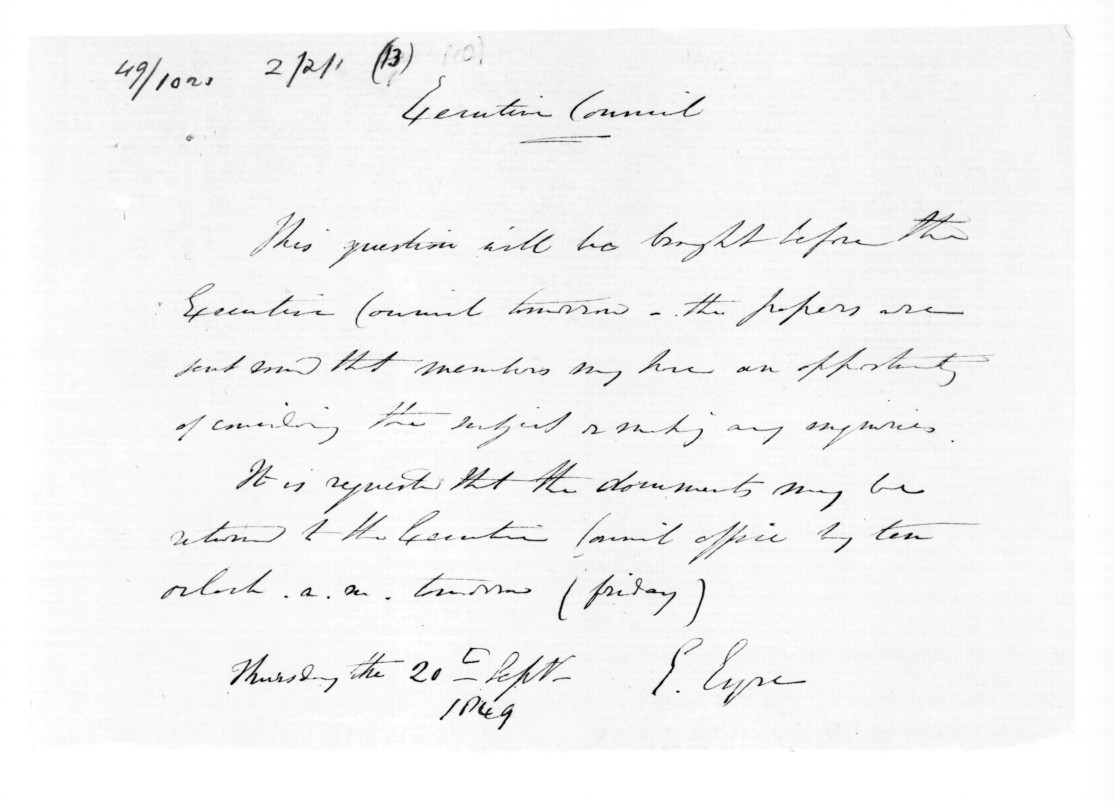 49/1023 2/2/1 (13) (10)
Executive Council
This question will be brought before the
Executive Council tomorrow - the papers are
sent round that members may have an opportunity
of considering the subject or making any inquiries.
It is requested that the documents may be
returned to the Executive Council office by ten
oclock. a.m. tomorrow (friday)
Thursday the 20th Sept
1849
E. Eyre